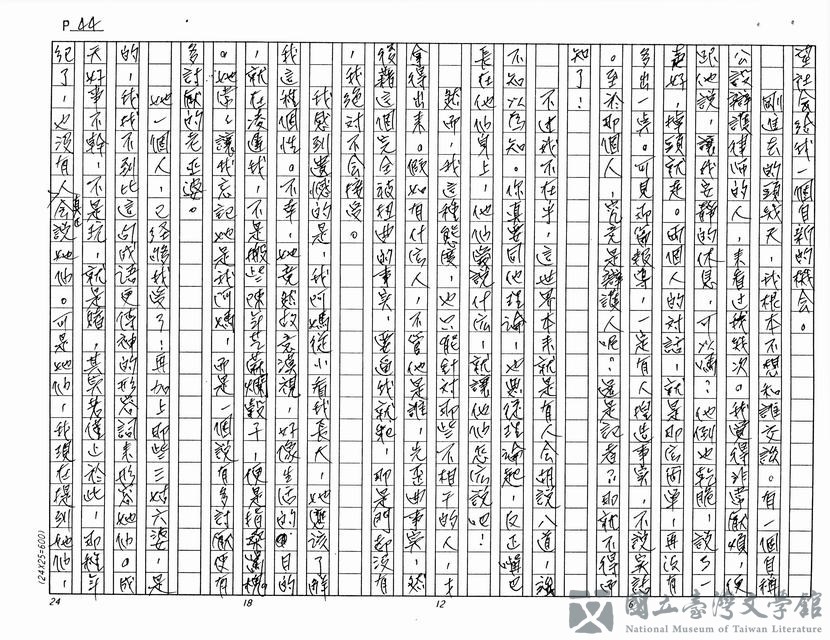 P 44
望社會給我一個自新的機會。
剛進去的頭幾天，我根本不想和誰交談。有一個自稱
公設辯護律師的人，來看過我幾次。我覺得非常厭煩，便
跟他說，讓我安靜的休息，可以嗎？他倒也乾脆，說了一
聲好，掉頭就走。兩個人的對話，就是那麼簡單，再沒有
多出一點。可見那篇報導，一定有人捏造事實，不說實話
。至於那個人，究竟是辯護人呢？還是記者？那就不得而
知了！
不過我不在乎，這世界本來就是有人會胡說八道，強
不知以為知。你真要同他理論，也無從理論起，反正嘴巴
長在他們身上，他們愛說什麼，就讓他們怎麼說吧！
然而，我這種態度，也只能針對那些不相干的人，才
拿得出來。假如有什麼人，不管他是誰，先歪曲事實，然
後藉這個完全被扭曲的事實，要逼我就範，那是門都沒有
，我絕對不會接受。
我感到遺憾的是，我阿媽從小看我長大，她應該了解
我這種個性。不幸，她竟然故意漠視，好像生活的目的
，就在凌遲我，不是搬些陳年芝麻爛穀子，便是指桑罵槐
。她常讓我忘記她是我阿媽，而是一個說有多討厭便有
多討厭的老巫婆。
她一個人，已經夠我受了，再加上那些三姑六婆，是
的，我找不到比這句成語更傳神的形容詞來形容她們。成
天好事不幹，不是玩，就是賭，其實若僅止於此，那種年
紀了，也沒有人會說她們。可是她們，我現在提到她們，
24
18
12
6
(24X25=600)
國立臺灣文學館
National Museum of Taiwan Literature